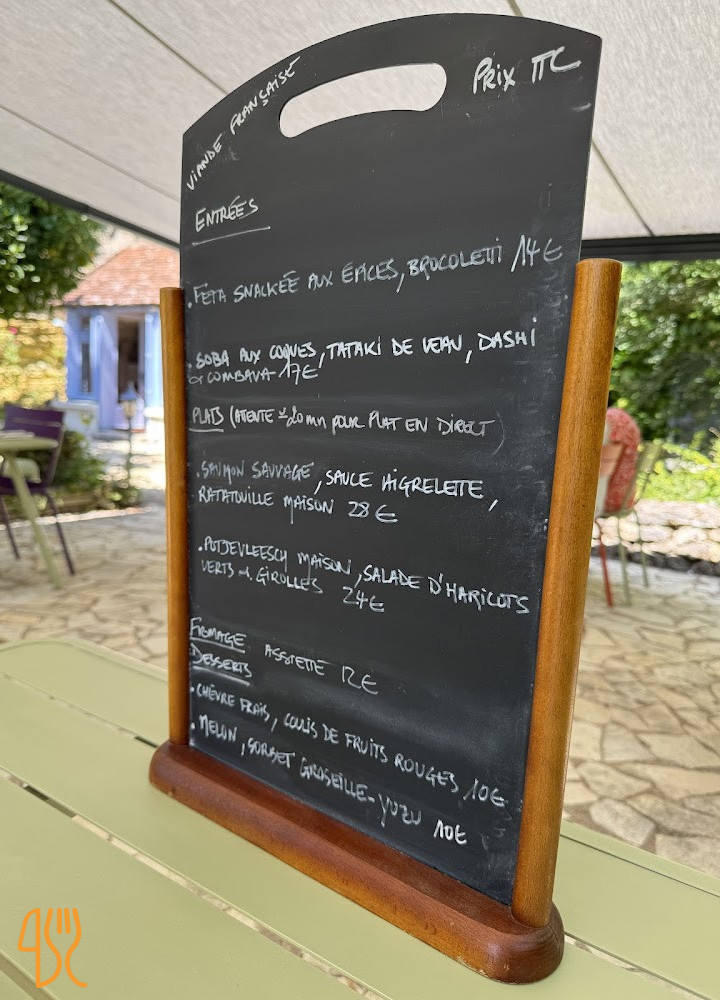 VIANDE FRANÇAISE
PRIX TTC
ENTRÉES
. FETA SNACKÉE AUX ÉPICES, BROCOLETTI 14€
. SOBA AUX COQUES, TATAKI DE VEAU, DASHI
COMBAVA 17€
PLATS (ATTENTE 20 mn POUR PLAT EN DIRECT)
. SAUMON SAUVAGE, SAUCE AIGRELETTE,
RATATOUILLE MAISON 28€
. POTJEVLEESCH MAISON, SALADE D'HARICOTS
VERTS GIROLLES 24€
FROMAGE ASSIETTE 12€
DESSERTS
. CHÈVRE FRAIS, COULIS DE FRUITS ROUGES 10€
. MELON, SORBET GROSEILLE-YUZU 10€